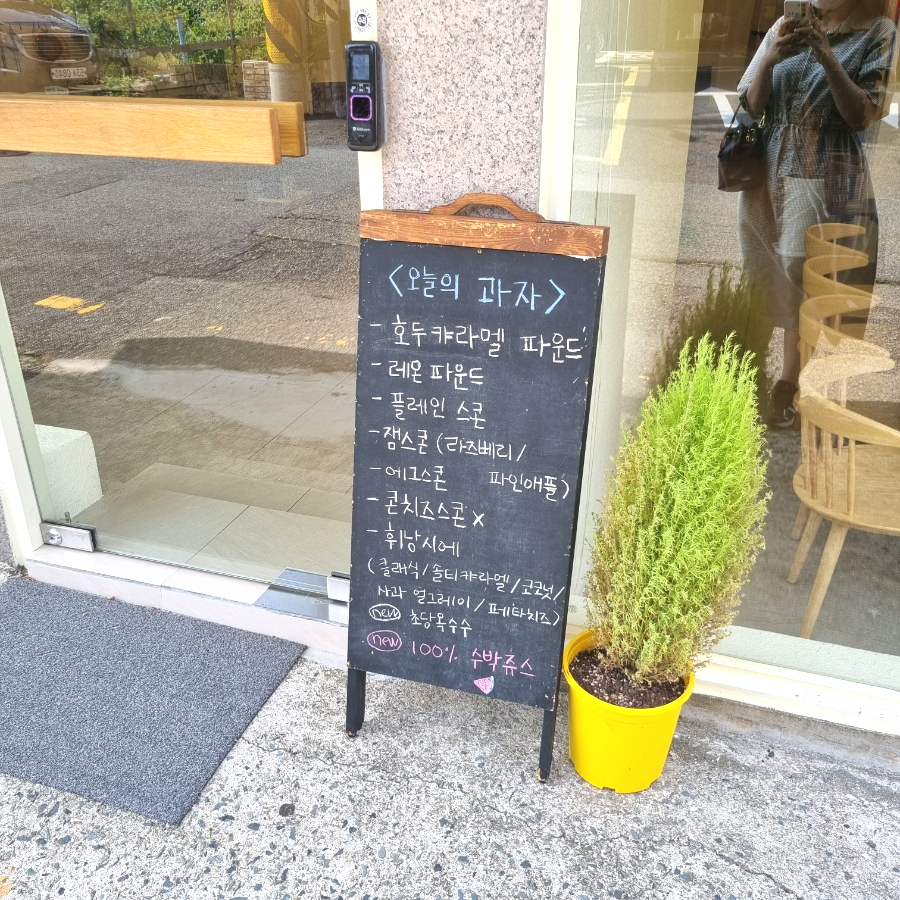 <오늘의 과자>
- 호두캬라멜 파운드
- 레몬 파운드
- 플레인 스콘
- 잼스콘 (라즈베리/
파인애플)
- 에그스콘
- 콘치즈스콘 x
- 휘낭시에
(클래식/솔티캬라멜/코코넛/
사과 얼그레이/페타치즈)
new 초당옥수수
new 100% 수박쥬스